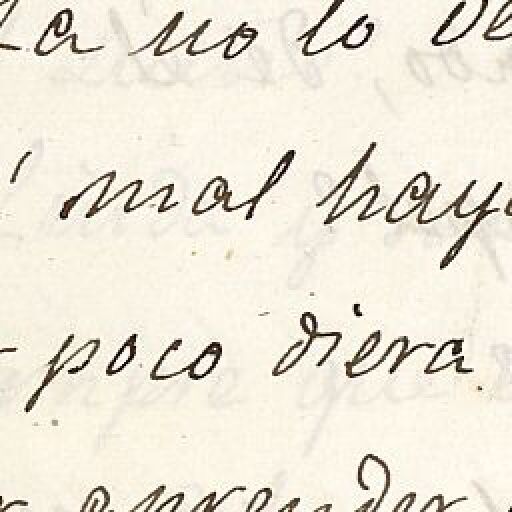 ta no lo ve
mal haya
poco diera
aprender